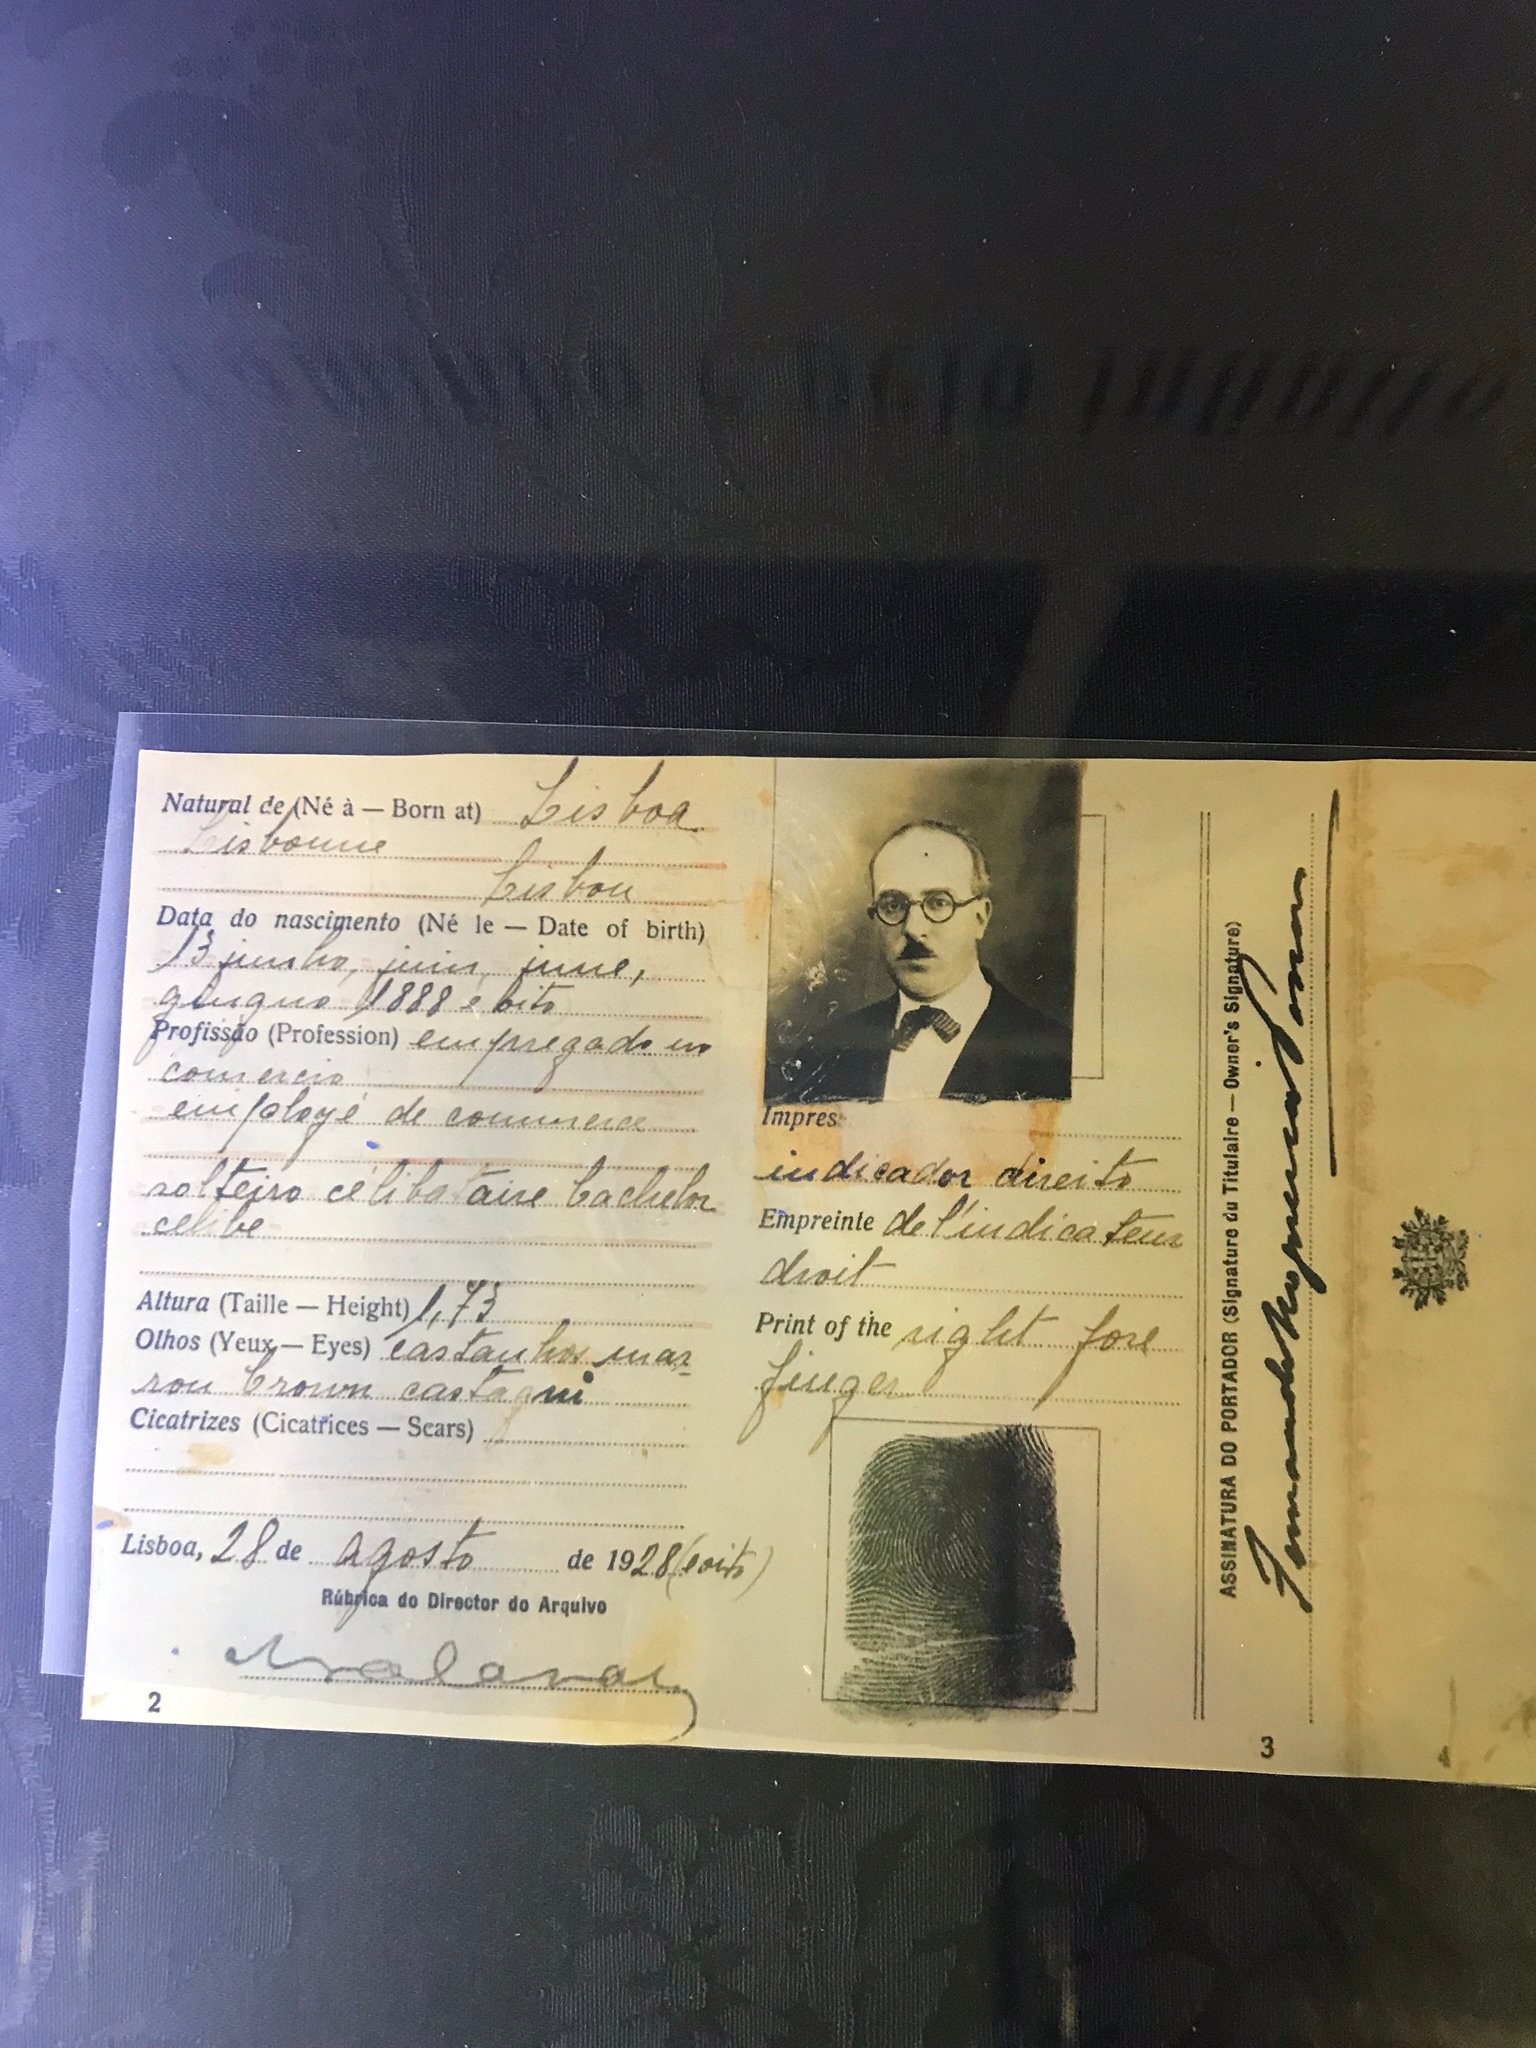 Natural de (Né à — Born at) Lisboa
Lisbonne
Lisbon
Data do nascimento (Né le — Date of birth)
13 junho, juin, june,
giugno 1888 e oito
Profissão (Profession) empregado no
comercio
employé de commerce
solteiro célibataire bachelor
celibe
Altura (Taille — Height) 1,73
Olhos (Yeux — Eyes) castanhos mar-
ron brown castagni
Cicatrizes (Cicatrices — Scars)
Lisboa, 28 de agosto de 1928 (e oito)
Rúbrica do Director do Arquivo
2
Impres
indicador direito
Empreinte de l'indicateur
droit
Print of the right fore
finger
ASSINATURA DO PORTADOR (Signature du Titulaire — Owner's Signature)
Fernando Nogueira Pessoa
3
4